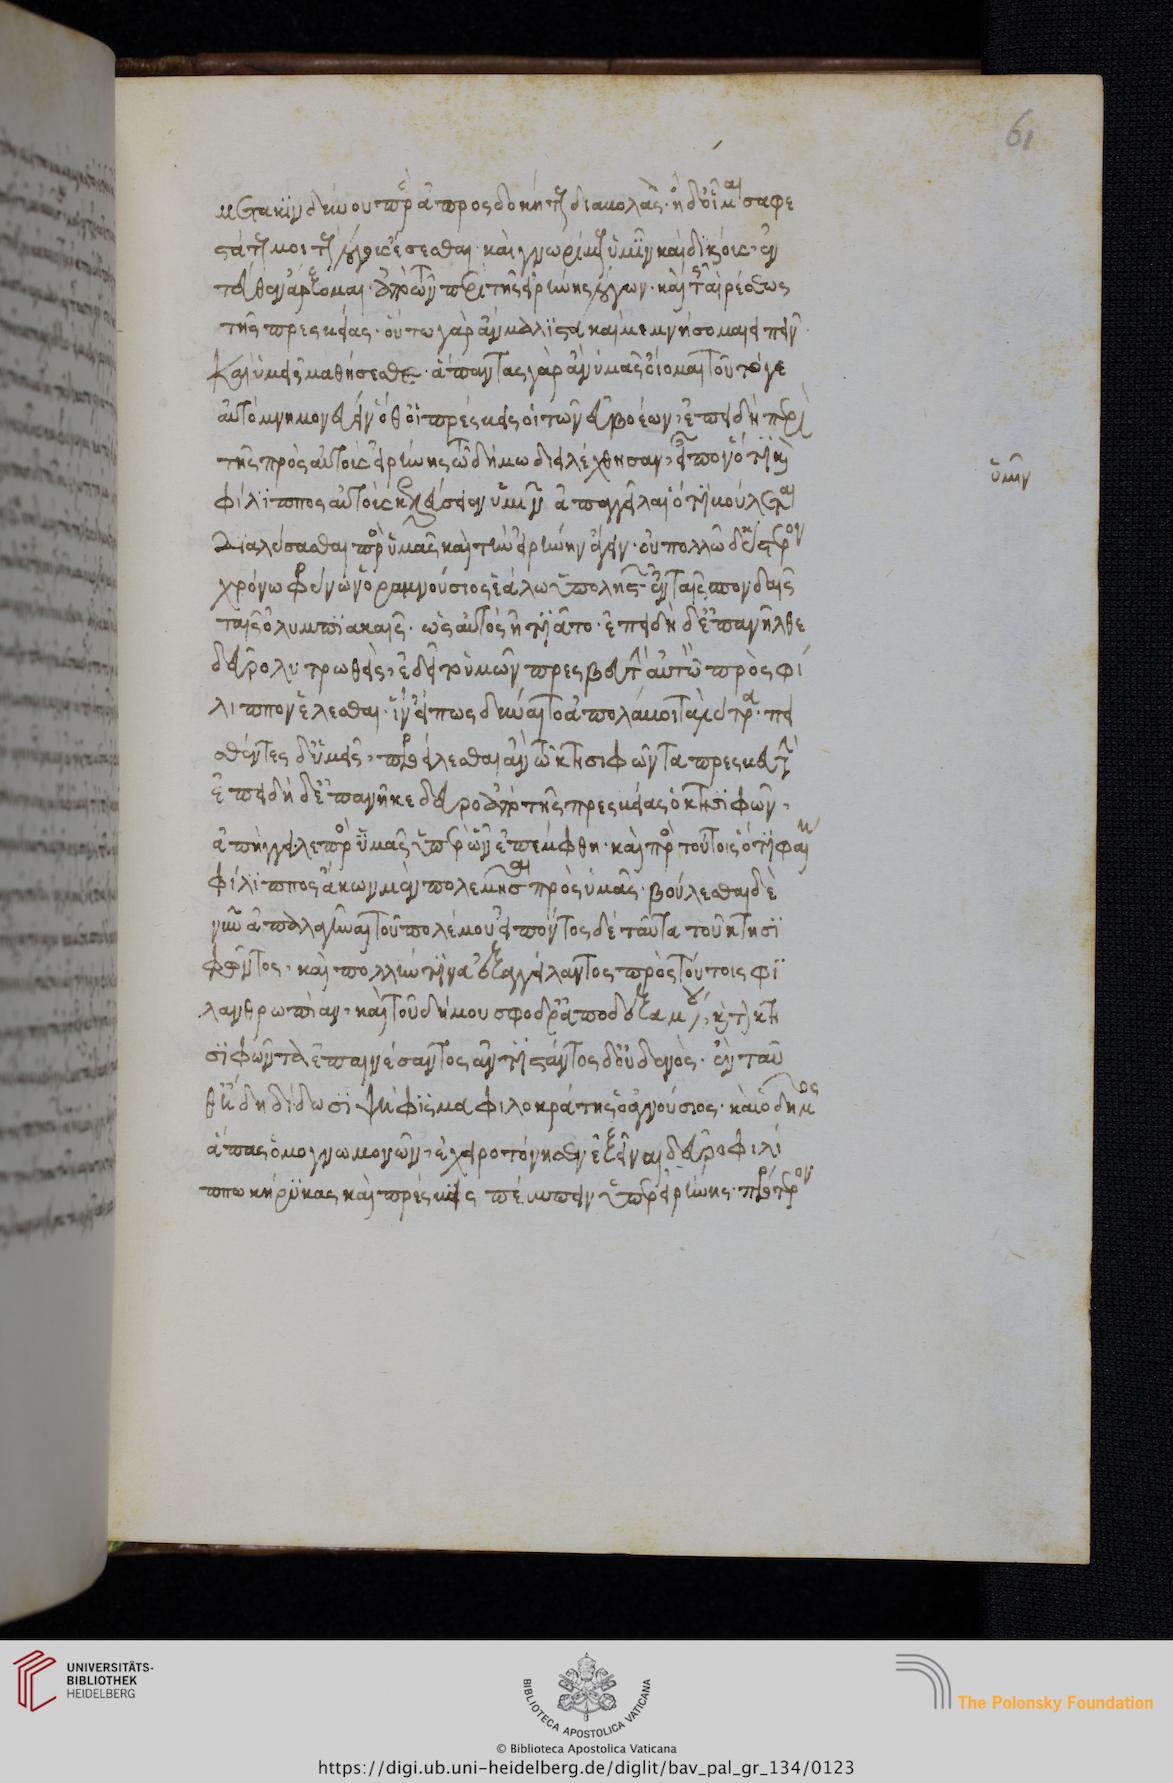 61
μετακινδύνου παραπροσδοκήτου διαβολάς· ἡδὲ οἶμαι σαφε
στάτους μοι τοὺς λόγους ἔσεσθαι καὶ γνωρίμους ὑμῖν καὶ δικάσταις· ἐν
τεῦθεν ἄρξομαι· ἀπὸ τῶν περὶ τῆς εἰρήνης λόγων· καὶ τῆς αἱρέσεως
τῆς πρεσβείας· οὕτω γὰρ ἂν μάλιστα καὶ μεμνήσομαι εἰπεῖν·
Καὶ ὑμεῖς μαθήσεσθε· ἅπαντας γὰρ ἂν ὑμᾶς οἴομαι τοῦτό γε
αὐτὸ μνημονεύειν ὅθ' οἱ πρέσβεις οἱ τῶν εὐβοέων, ἐπειδὴ περὶ
τῆς πρὸς αὐτοὺς εἰρήνης τῷ δήμῳ διελέχθησαν, εἶπον ὅτι καὶ
ὑμῖν
φίλιππος αὐτοὺς κελεύσειεν ὑμῖν ἀπαγγεῖλαι ὅτι βούλεται
διαλύσασθαι πρὸς ὑμᾶς καὶ τὴν εἰρήνην ἄγειν· οὐ πολλῷ δ' ὕστερον
χρόνῳ φρύνων ὁ ραμνούσιος ἑάλω ὑπὸ λῃστῶν ἐν ταῖς σπονδαῖς
ταῖς ὀλυμπιακαῖς· ὡς αὐτὸς ᾐτιᾶτο· ἐπειδὴ δ' ἐπανῆλθε
δεῦρο λυτρωθείς, ἐδεῖτο ὑμῶν πρεσβευτὴν αὐτῷ πρὸς φί
λιππον ἑλέσθαι· ἵν' εἴ πως δύναιτο ἀπολάβοι τὰ λύτρα· πει
σθέντες δ' ὑμεῖς, προείλεσθαι αὐτῷ κτησιφῶντα πρεσβευτήν
ἐπειδὴ δ' ἐπανῆκε δεῦρο ἀπὸ τῆς πρεσβείας ὁ κτησιφῶν,
ἀπήγγελε πρὸς ὑμᾶς ὑπὲρ ὧν ἐπέμφθη· καὶ πρὸς τούτοις ὅτι φαίη
φίλιππος ἄκων μὲν πολεμῆσαι πρὸς ὑμᾶς· βούλεσθαι δὲ
νῦν ἀπαλαγῆναι τοῦ πολέμου εἰπόντος δὲ ταῦτα τοῦ κτησι
φῶντος, καὶ πολλήν τινα ἐξαγγείλαντος πρὸς τούτοις φι
λανθρωπίαν, καὶ τοῦ δήμου σφόδρα ἀποδεξαμένου, καὶ τὸν κτη
σιφῶντα ἐπαινέσαντος ἀντιστάντος δ' οὐδενός· ἐνταῦ
θ' ἤδη δίδωσι ψήφισμα φιλοκράτης ὁ ἁγνούσιος· καὶ ὁ δῆμος
ἅπας ὁμογνωμονῶν, ἐχειροτόνησεν ἐξεῖναι δεῦρο φιλί
ππῳ κήρυκας καὶ πρέσβεις πέμπειν ὑπὲρ εἰρήνης· πρότερον
UNIVERSITÄTS-
BIBLIOTHEK
HEIDELBERG
BIBLIOTECA APOSTOLICA VATICANA
The Polonsky Foundation
© Biblioteca Apostolica Vaticana
https://digi.ub.uni-heidelberg.de/diglit/bav_pal_gr_134/0123